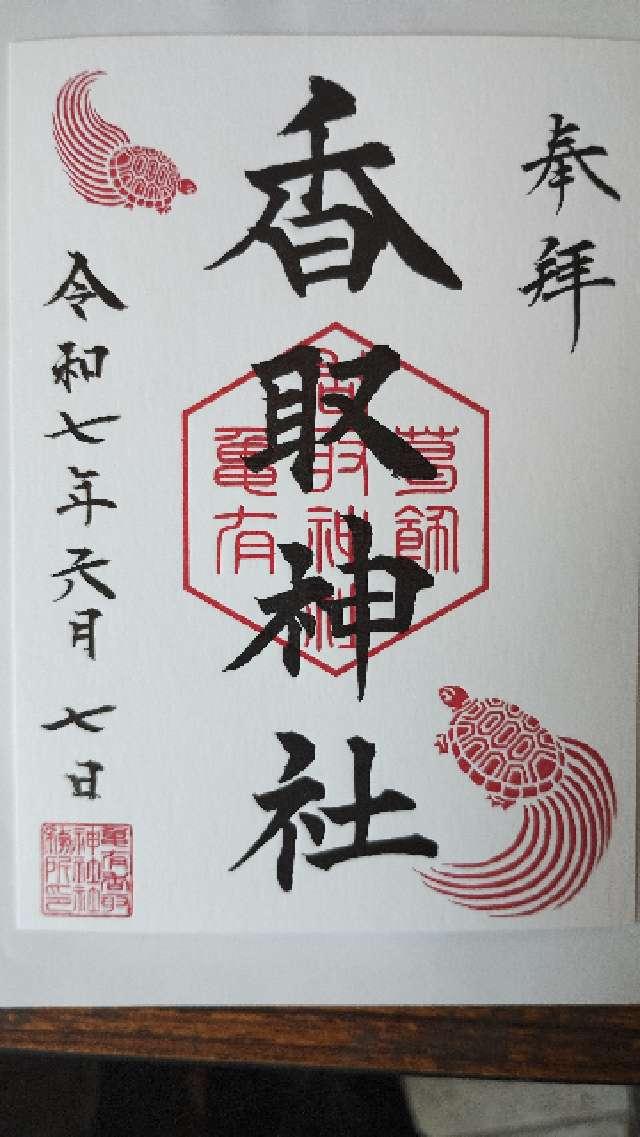 奉拝
香取神社
葛飾
香取神社
亀有
令和七年六月七日
亀有香取
神社社
務所印